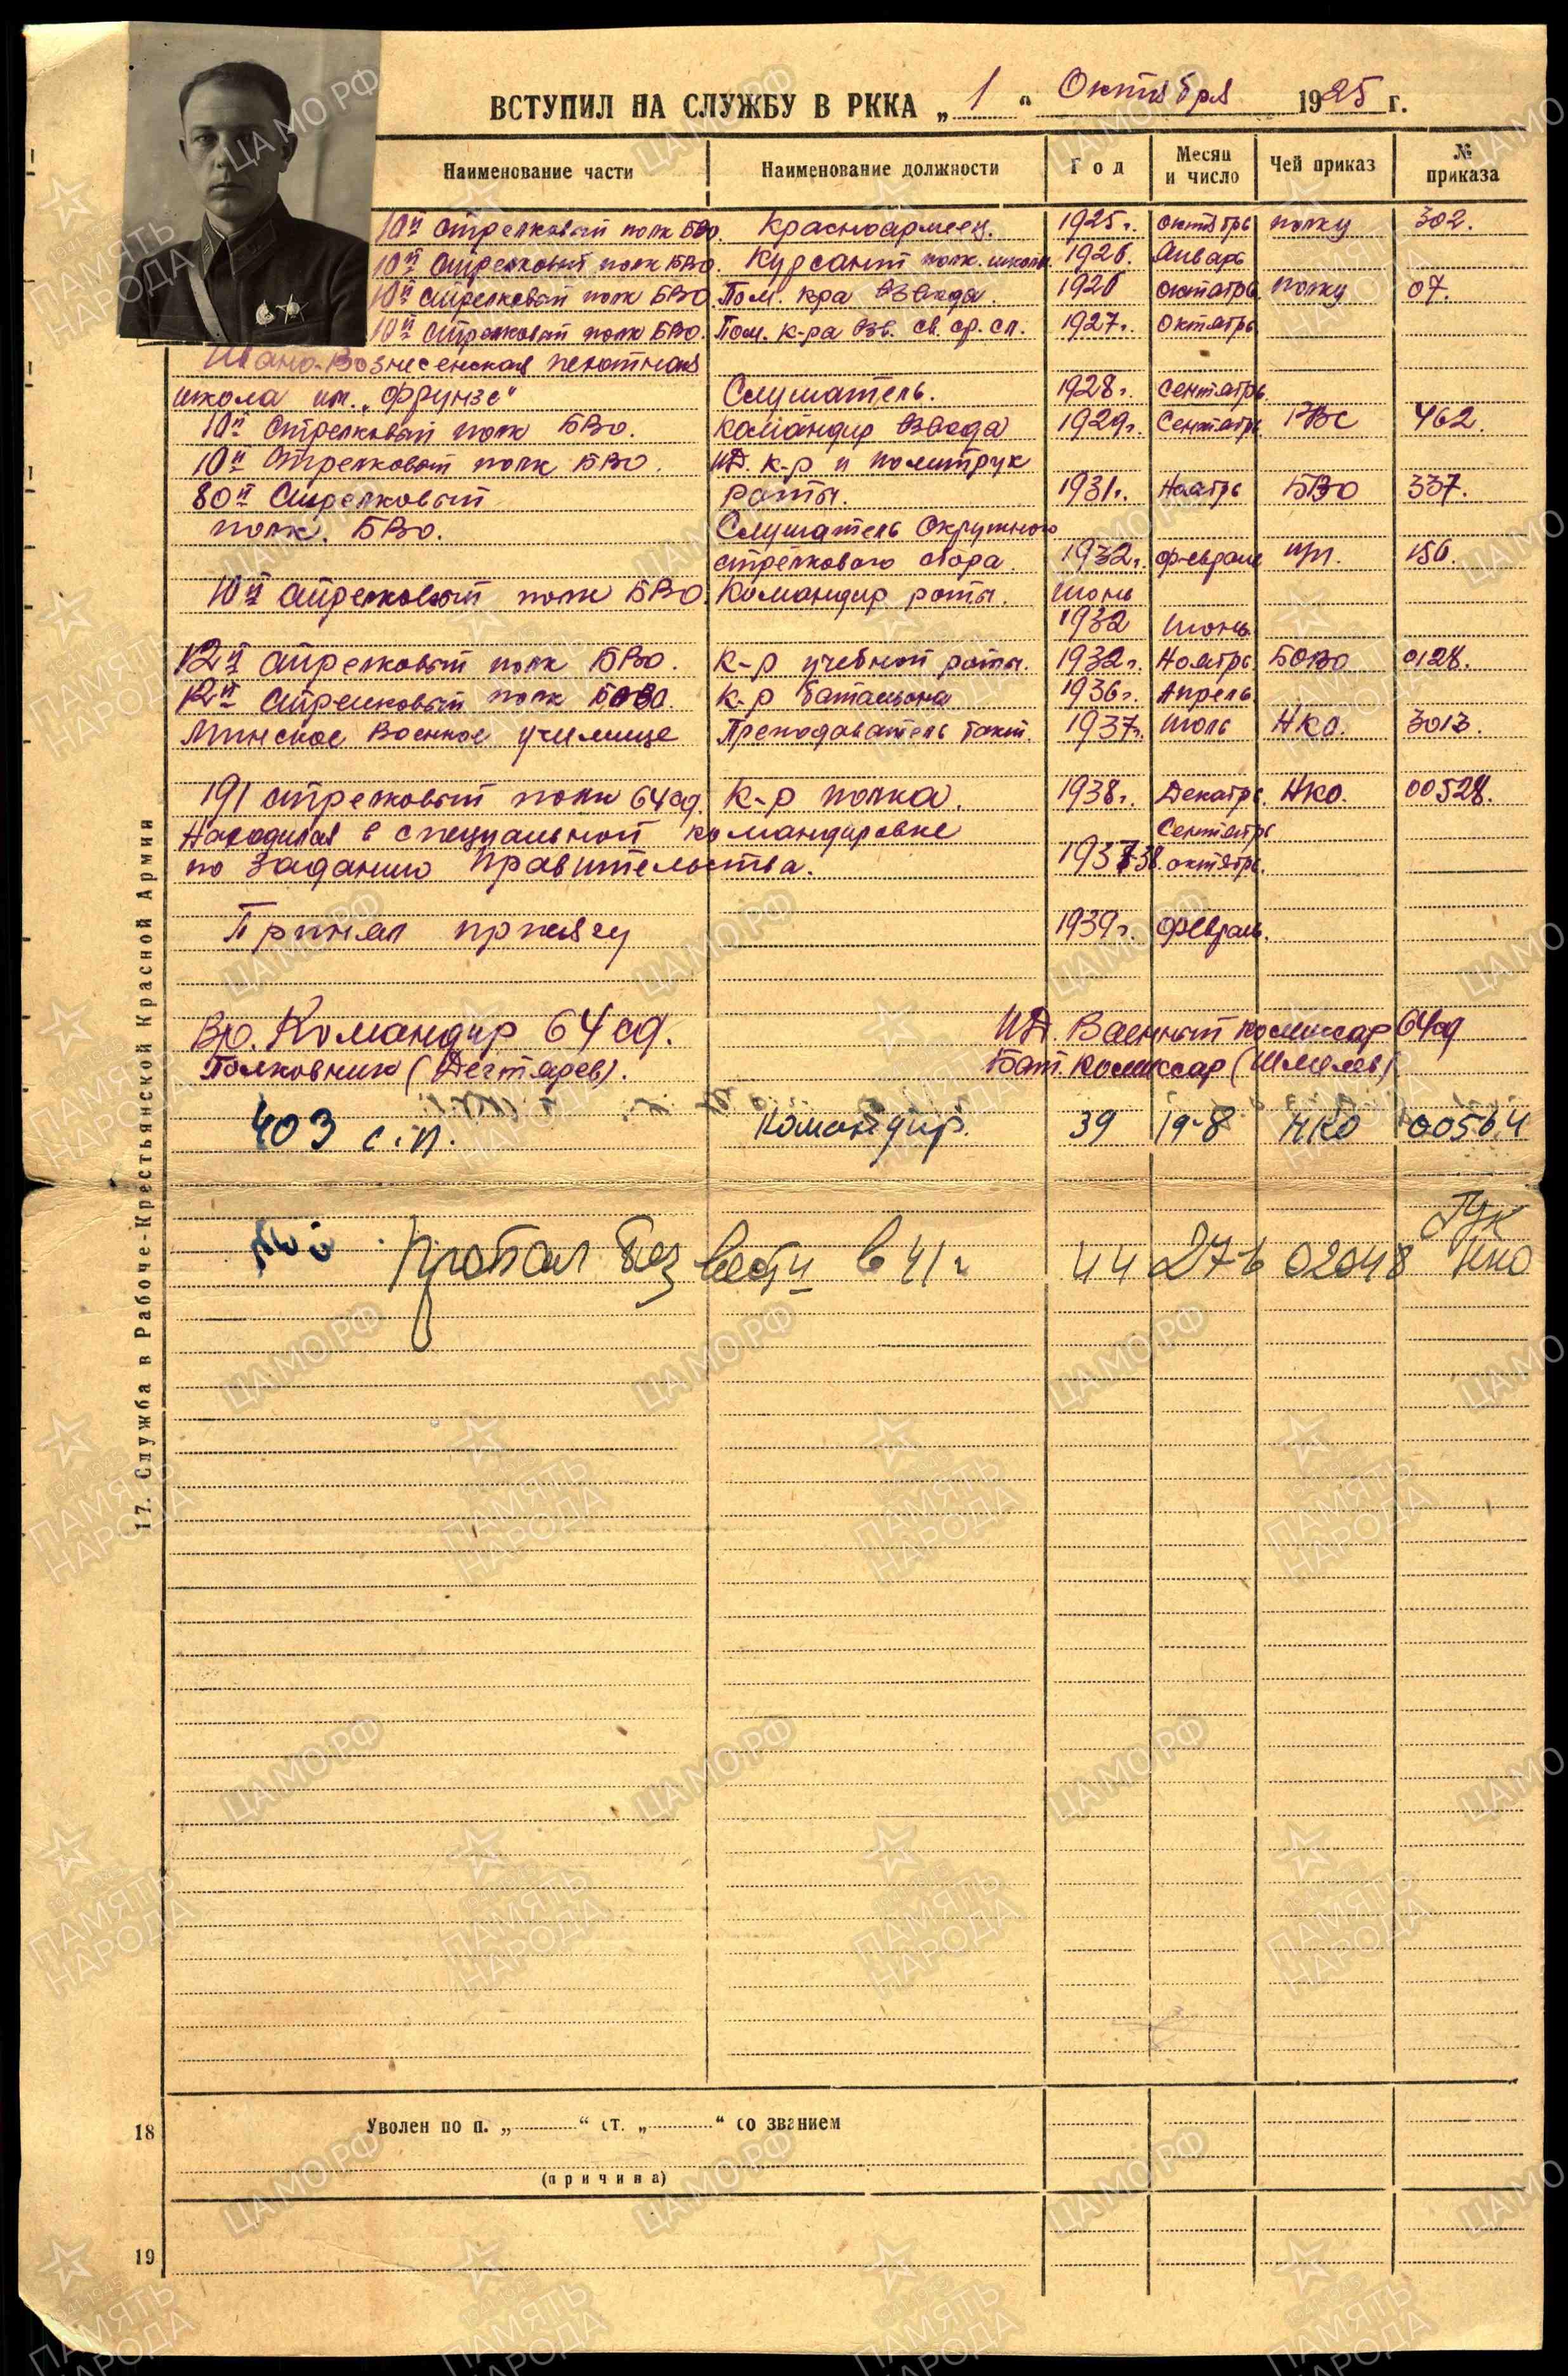 ВСТУПИЛ НА СЛУЖБУ В РККА „1“ Октября 1925 г.
Наименование части Наименование должности Год Месяц и число Чей приказ № приказа
10й стрелковый полк БВО. Красноармеец. 1925г. октябрь полку 302.
10й стрелковый полк БВО. Курсант полк. школы 1926. Январь
10й стрелковый полк БВО Пом. кра взвода. 1926 октябрь полку 07.
10й стрелковый полк БВО. Пом. к-ра взв. св. ср. сл. 1927г. Октябрь
Ивано-Вознесенская пехотная
школа им. „Фрунзе“ Слушатель. 1928г. сентябрь.
10й стрелковый полк БВО. Командир взвода 1929г. Сентябрь РВС 462.
10й стрелковый полк БВО. ИД. к-р и политрук
80й стрелковый роты. 1931г. Ноябрь БВО 337.
полк. БВО. Слушатель Окружного
стрелкового сбора. 1932г. февраль 156.
10й стрелковый полк БВО. Командир роты. Июнь
1932 Июнь
12й стрелковый полк БВО. к-р учебной роты. 1932г. Ноябрь БОВО 0128.
12й стрелковый полк БОВО. к-р батальона 1936г. Апрель
Минское Военное училище Преподаватель такт. 1937г. Июль НКО. 3013.
191 стрелковый полк 64сд. К-р полка. 1938г. Декабрь. НКО. 00528.
Находился в специальной командировке Сентябрь
по заданию Правительства. 1937-38. октябрь.
Принял присягу 1939г. Февраль.
Вр. Командир 64 сд. ИД. Военный комиссар 64сд
Полковник (Дегтярев). Бат. Комиссар (Шмелев)
403 с.п. Командир. 39 19-8 НКО 00564
ГУК
Пропал без вести в 41 г 44 27-6 02048 НКО
17. Служба в Рабоче-Крестьянской Красной Армии
18 Уволен по п. „ “ ст. „ “ со званием
(причина)
19
ЦАМО РФ
ПАМЯТЬ НАРОДА